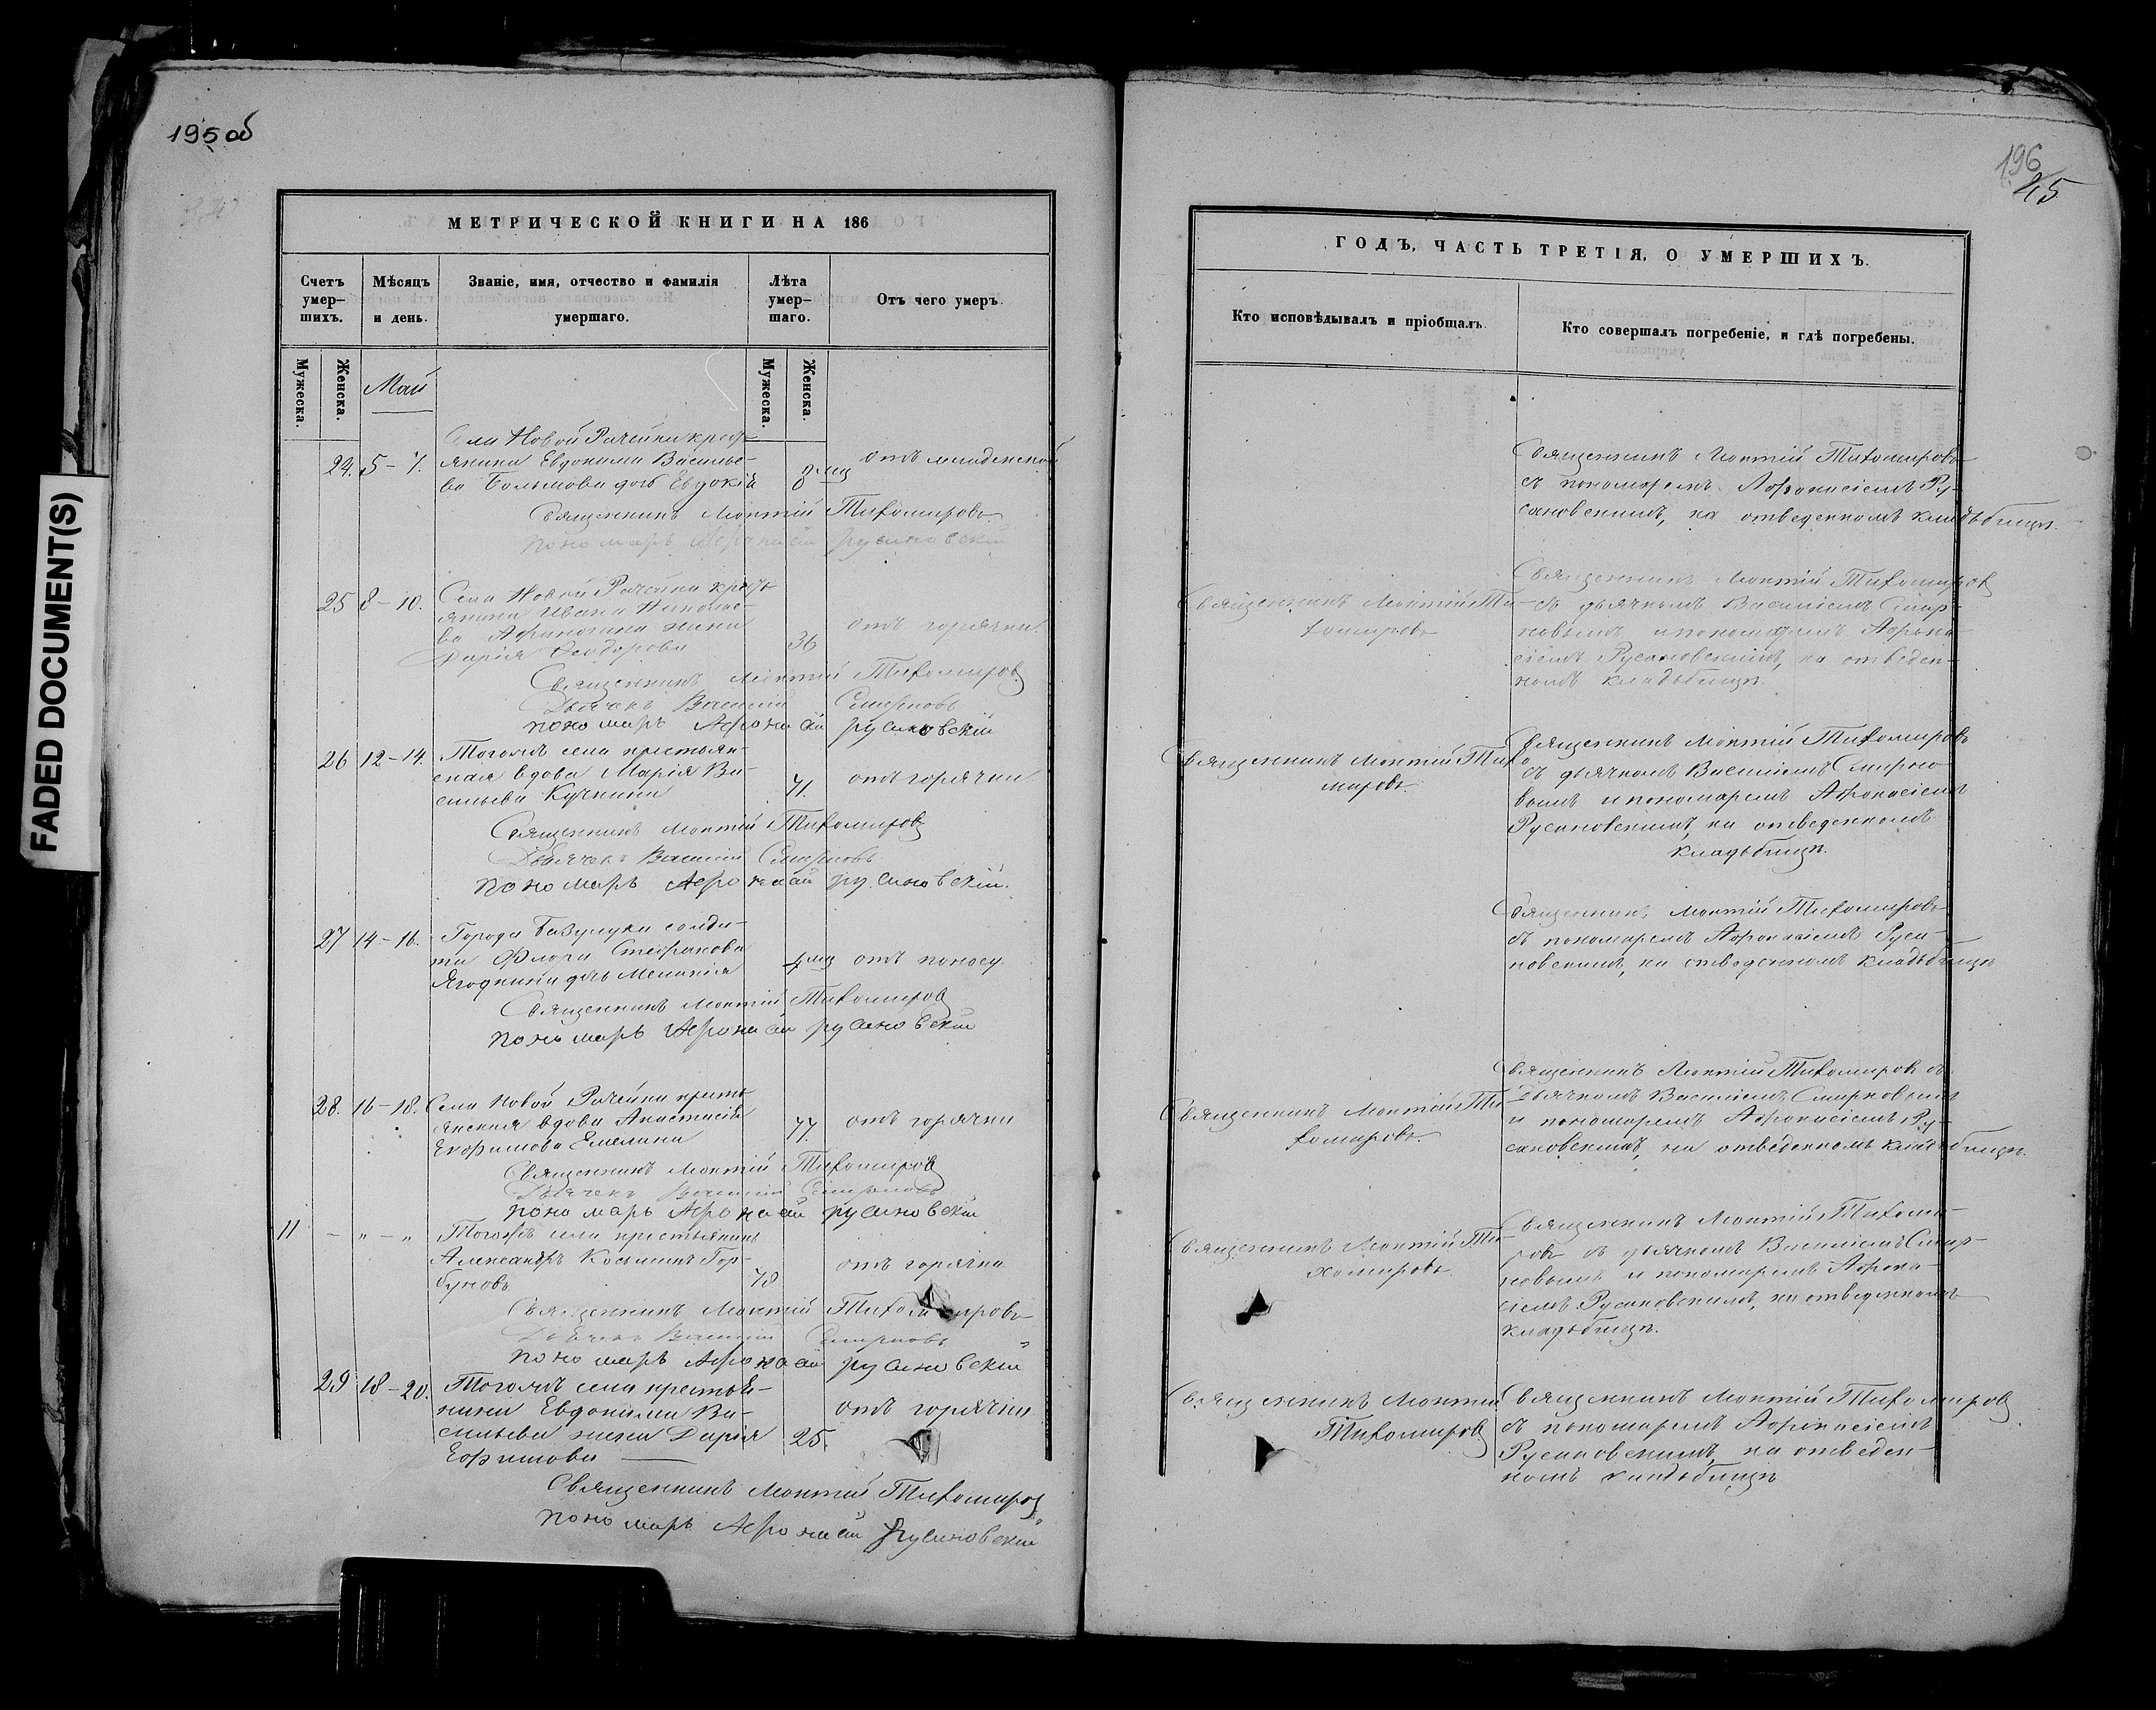 195 об
МЕТРИЧЕСКОЙ КНИГИ НА 186
Счетъ умер-
шихъ.
Мѣсяцъ
и день.
Званіе, имя, отчество и фамилія
умершаго.
Лѣта
умер-
шаго.
Отъ чего умеръ.
Мужеска.
Женска.
Май
Мужеска.
Женска.
Села Новой Рачейки крес-
24. 5-7. янина Евдокима Василье- отъ младенской
ва дочь Евдокія 8 мц
Священникъ Моктій Тихомировъ
пономарь Афонасій русановскій
Села Новой Рачейки крестъ
25 8-10. янина Ивана Николае-
ва Афиногина жена 36 отъ горячки
Дарія Ѳеодорова
Священникъ Моктій Тихомировъ
Дьячекъ Василій Смирновъ
пономарь Афонасій русановскій
26 12-14. Тогожъ села крестьян-
ская вдова Марія Ва- 71. отъ горячки
сильева Кучкина
Священникъ Моктій Тихомировъ
Дьячекъ Василій Смирновъ
пономарь Афонасій русановскій.
27 14-16. Города Бузулука солда-
та Флора Стефанова 4 мц отъ поносу
Ягодкина дочь Меланія
Священникъ Моктій Тихомировъ
пономарь Афонасій русановскій
28. 16-18. Села Новой Рачейки кресть
янская вдова Анастасія 77. отъ горячки
Ефимова Емелина
Священникъ Моктій Тихомировъ
Дьячекъ Василій Смирновъ
пономарь Афонасій русановскій
11 - „ - „ Тогожъ села крестьянинъ
Александръ Косьминъ Гор- отъ горячки
буновъ 78
Священникъ Моктій Тихомировъ
Дьячекъ Василій Смирновъ
пономарь Афонасій русановскій
29 18-20. Тогожъ села крестья-
нина Евдокима Ва- отъ горячки
сильева жена Дарія 25.
Ефимова
Священникъ Моктій Тихомировъ
пономарь Афонасій Русановскій
196
45
ГОДЪ, ЧАСТЬ ТРЕТІЯ, О УМЕРШИХЪ.
Кто исповѣдывалъ и пріобщалъ.
Кто совершалъ погребеніе, и гдѣ погребены.
Священникъ Моктій Тихомировъ
съ пономаремъ Афонасіемъ Ру-
сановскимъ, на отведенномъ кладбищѣ.
Священникъ Моктій Ти-
хомировъ
Священникъ Моктій Тихомировъ
съ дьячкомъ Василіемъ Смир-
новымъ и пономаремъ Афона-
сіемъ Русановскимъ, на отведен-
номъ кладбищѣ.
Священникъ Моктій Тихо
мировъ.
Священникъ Моктій Тихомировъ
съ дьячкомъ Василіемъ Смирно
вымъ и пономаремъ Афонасіемъ
Русановскимъ, на отведенномъ
кладбищѣ.
Священникъ Моктій Тихомировъ
съ пономаремъ Афонасіемъ Руса-
новскимъ, на отведенномъ кладбищѣ
Священникъ Моктій Ти
хомировъ.
Священникъ Моктій Тихомировъ съ
дьячкомъ Василіемъ Смирновымъ
и пономаремъ Афонасіемъ Ру-
сановскимъ, на отведенномъ кладбищѣ.
Священникъ Моктій Ти-
хомировъ.
Священникъ Моктій Тихоми-
ровъ съ дьячкомъ Василіемъ Смир-
новымъ и пономаремъ Афона-
сіемъ Русановскимъ, на отведенномъ
кладбищѣ.
Священникъ Моктій
Тихомировъ
Священникъ Моктій Тихомировъ
съ пономаремъ Афонасіемъ
Русановскимъ, на отведен-
номъ кладбищѣ
FADED DOCUMENT(S)